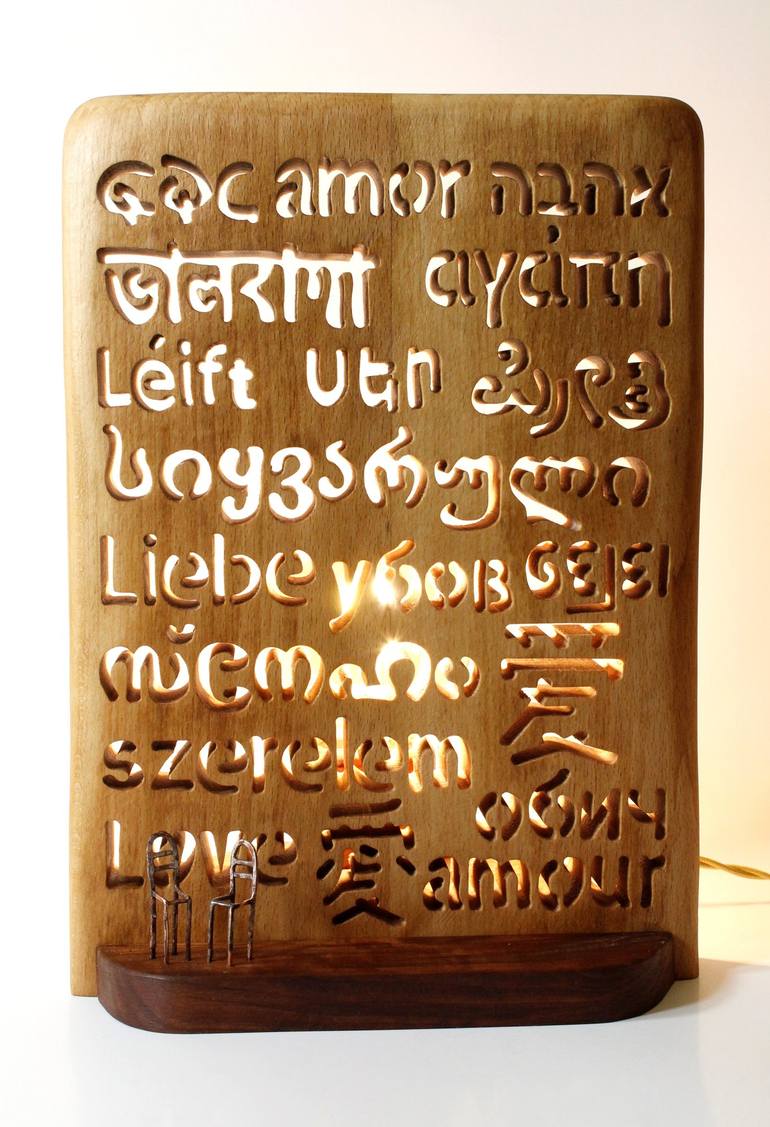 amor אהבה
ভালবাসা αγάπη
Léift սեր
სიყვარული
Liebe
സ്നേഹം 爱
szerelem
обич
Love 愛 amour